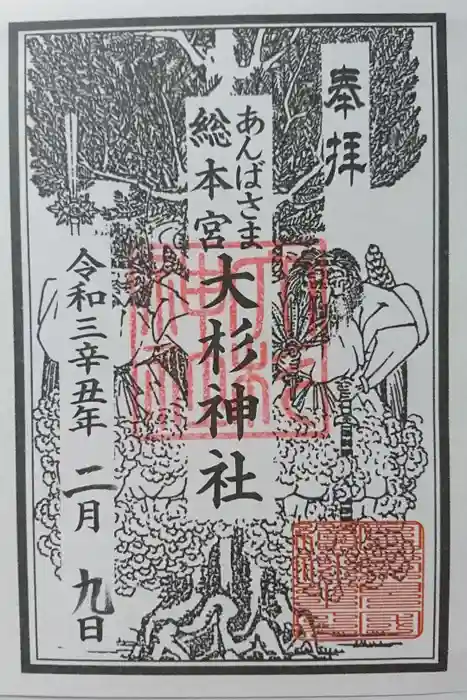 奉拝
あんばさま
総本宮
大杉神社
令和三辛丑年 二月 九日